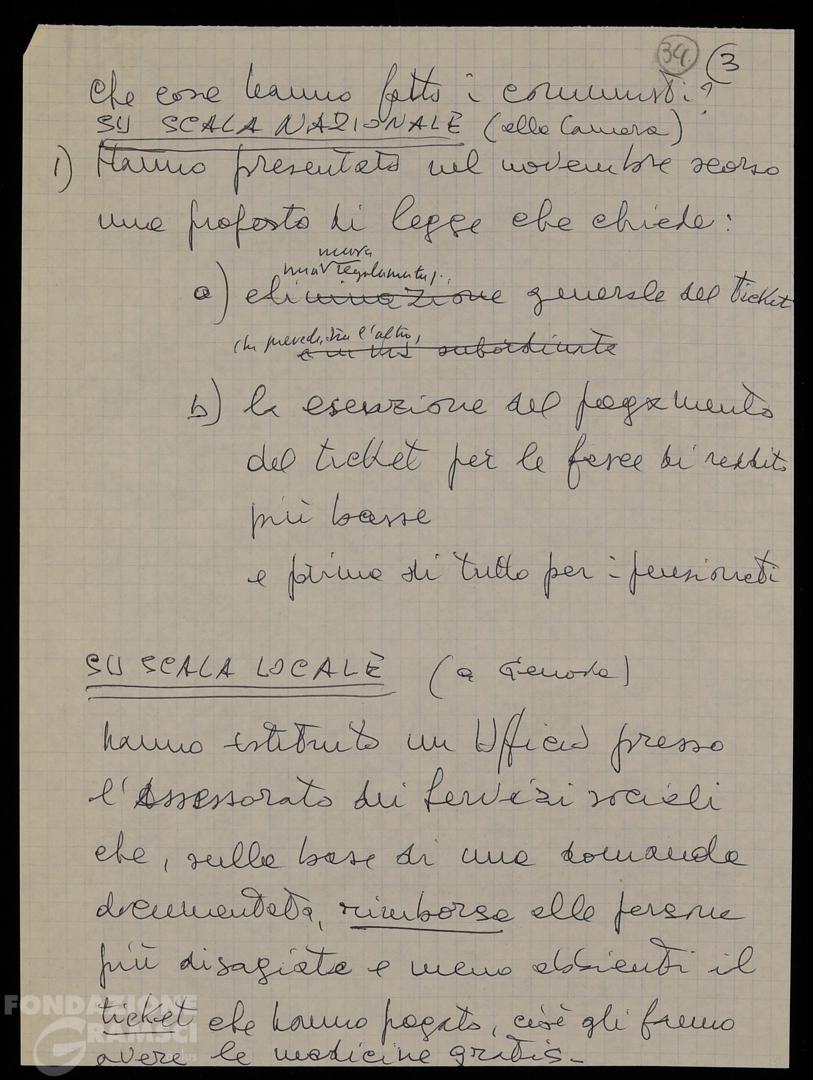 34 (3
Che cosa hanno fatto i comunisti?
SU SCALA NAZIONALE (alla Camera)
1) Hanno presentato nel novembre scorso
una proposta di legge che chiede:
nuova
regolamentaz.
a) eliminazione generale del ticket
che preveda, tra l'altro,
e in via subordinata
b) la esenzione del pagamento
del ticket per le fasce di reddito
più basse
e prima di tutto per i pensionati
SU SCALA LOCALE (a Genova)
hanno istituito un Ufficio presso
l'Assessorato dei Servizi sociali
che, sulla base di una domanda
documentata, rimborsa alle persone
più disagiate e meno abbienti il
ticket che hanno pagato, cioè gli fanno
avere le medicine gratis.
FONDAZIONE
GRAMSCI